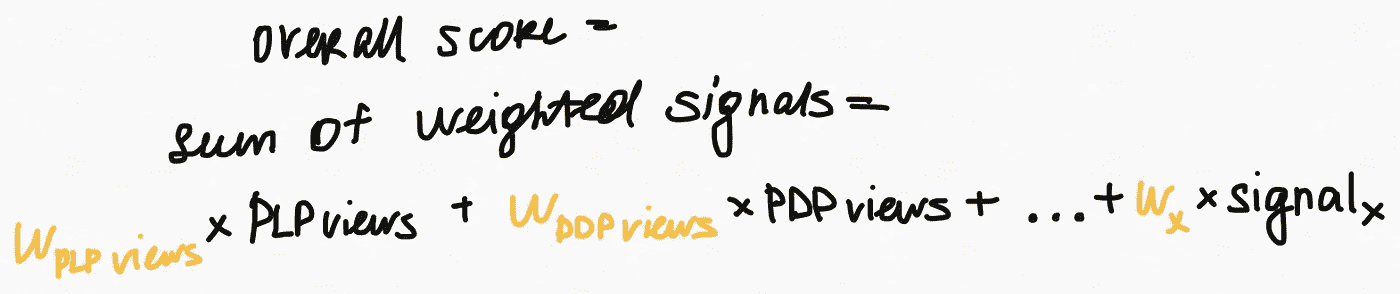 overall score =
sum of weighted signals =
W PLP views x PLP views + W DDP views x PDP views + ... + W x x signal x